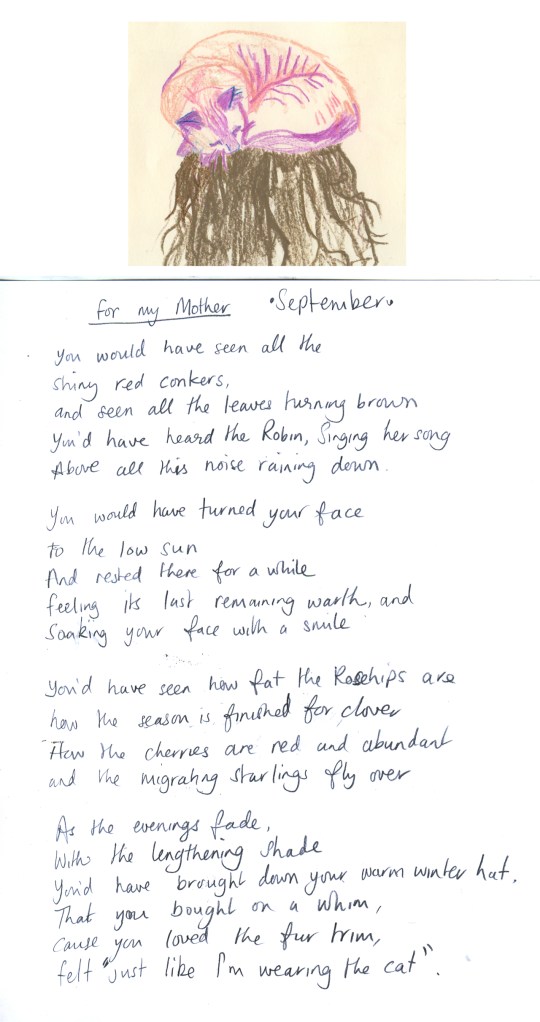 for my Mother •September•
You would have seen all the
shiny red conkers,
and seen all the leaves turning brown
You'd have heard the Robin, Singing her song
Above all this noise raining down.
You would have turned your face
to the low sun
And rested there for a while
feeling its last remaining warth, and
Soaking your face with a smile
You'd have seen how fat the Rosehips are
how the season is finished for clover
How the cherries are red and abundant
and the migrating starlings fly over
As the evenings fade,
With the lengthening shade
You'd have brought down your warm winter hat,
That you bought on a whim,
Cause you loved the fur trim,
felt "just like I'm wearing the cat".